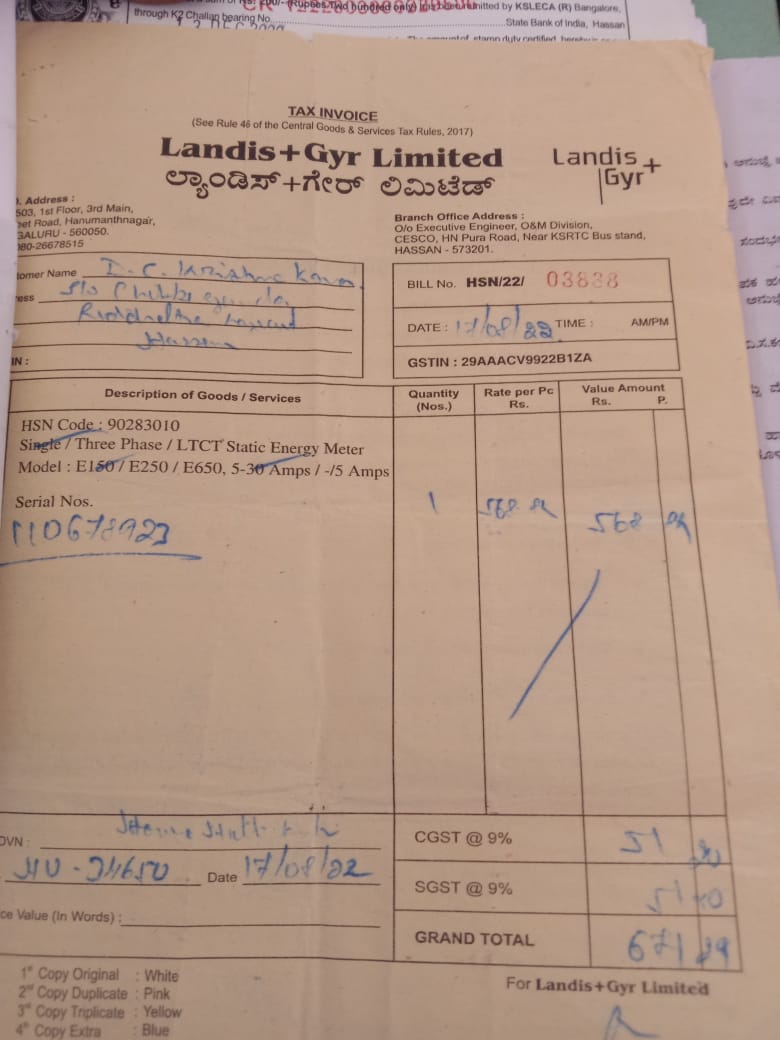 (Rupees Two hundred only)
mitted by KSLECA (R) Bangalore,
through K2 Challan bearing No.
State Bank of India, Hassan
TAX INVOICE
(See Rule 46 of the Central Goods & Services Tax Rules, 2017)
Landis+Gyr Limited
ಲ್ಯಾಂಡಿಸ್+ಗೇರ್ ಲಿಮಿಟೆಡ್
Landis+
Gyr
. Address :
503, 1st Floor, 3rd Main,
eet Road, Hanumanthnagar,
GALURU - 560050.
080-26678515
Branch Office Address :
O/o Executive Engineer, O&M Division,
CESCO, HN Pura Road, Near KSRTC Bus stand,
HASSAN - 573201.
tomer Name
ess S/o
Hassan
IN :
BILL No. HSN/22/ 03838
DATE : 17/08/22 TIME : AM/PM
GSTIN : 29AAACV9922B1ZA
Description of Goods / Services Quantity (Nos.) Rate per Pc Rs. Value Amount Rs. P.
HSN Code : 90283010
Single / Three Phase / LTCT Static Energy Meter
Model : E150 / E250 / E650, 5-30 Amps / -/5 Amps
Serial Nos. 1 568 568
110678923
OVN :
CGST @ 9% 51
Date 17/08/22
SGST @ 9% 51
ce Value (In Words) :
GRAND TOTAL 671
1st Copy Original : White
2nd Copy Duplicate : Pink
3rd Copy Triplicate : Yellow
4th Copy Extra : Blue
For Landis+Gyr Limited